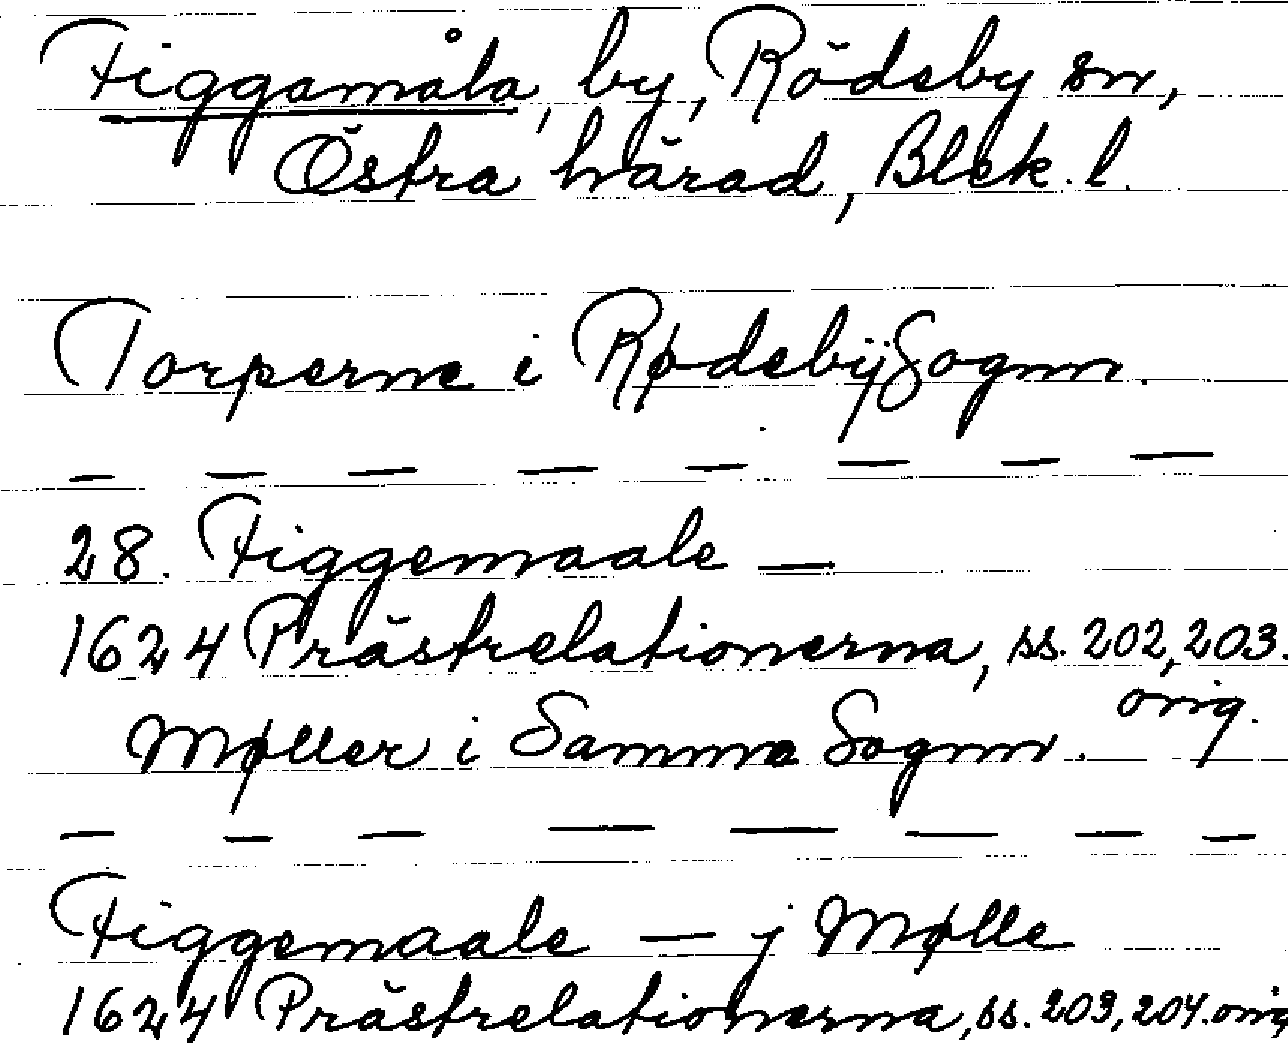 Figgamåla, by, Rödeby sn,
Östra härad, Blek. l.
Torperne i RødebijSognn.
— — — — — — — —
28. Figgemaale —
1624 Prästrelationerna, ss. 202, 203.
orig.
Møller i Samme Sognn.
— — — — — — — —
Figgemaale — j Mølle
1624 Prästrelationerna, ss. 203, 204. orig